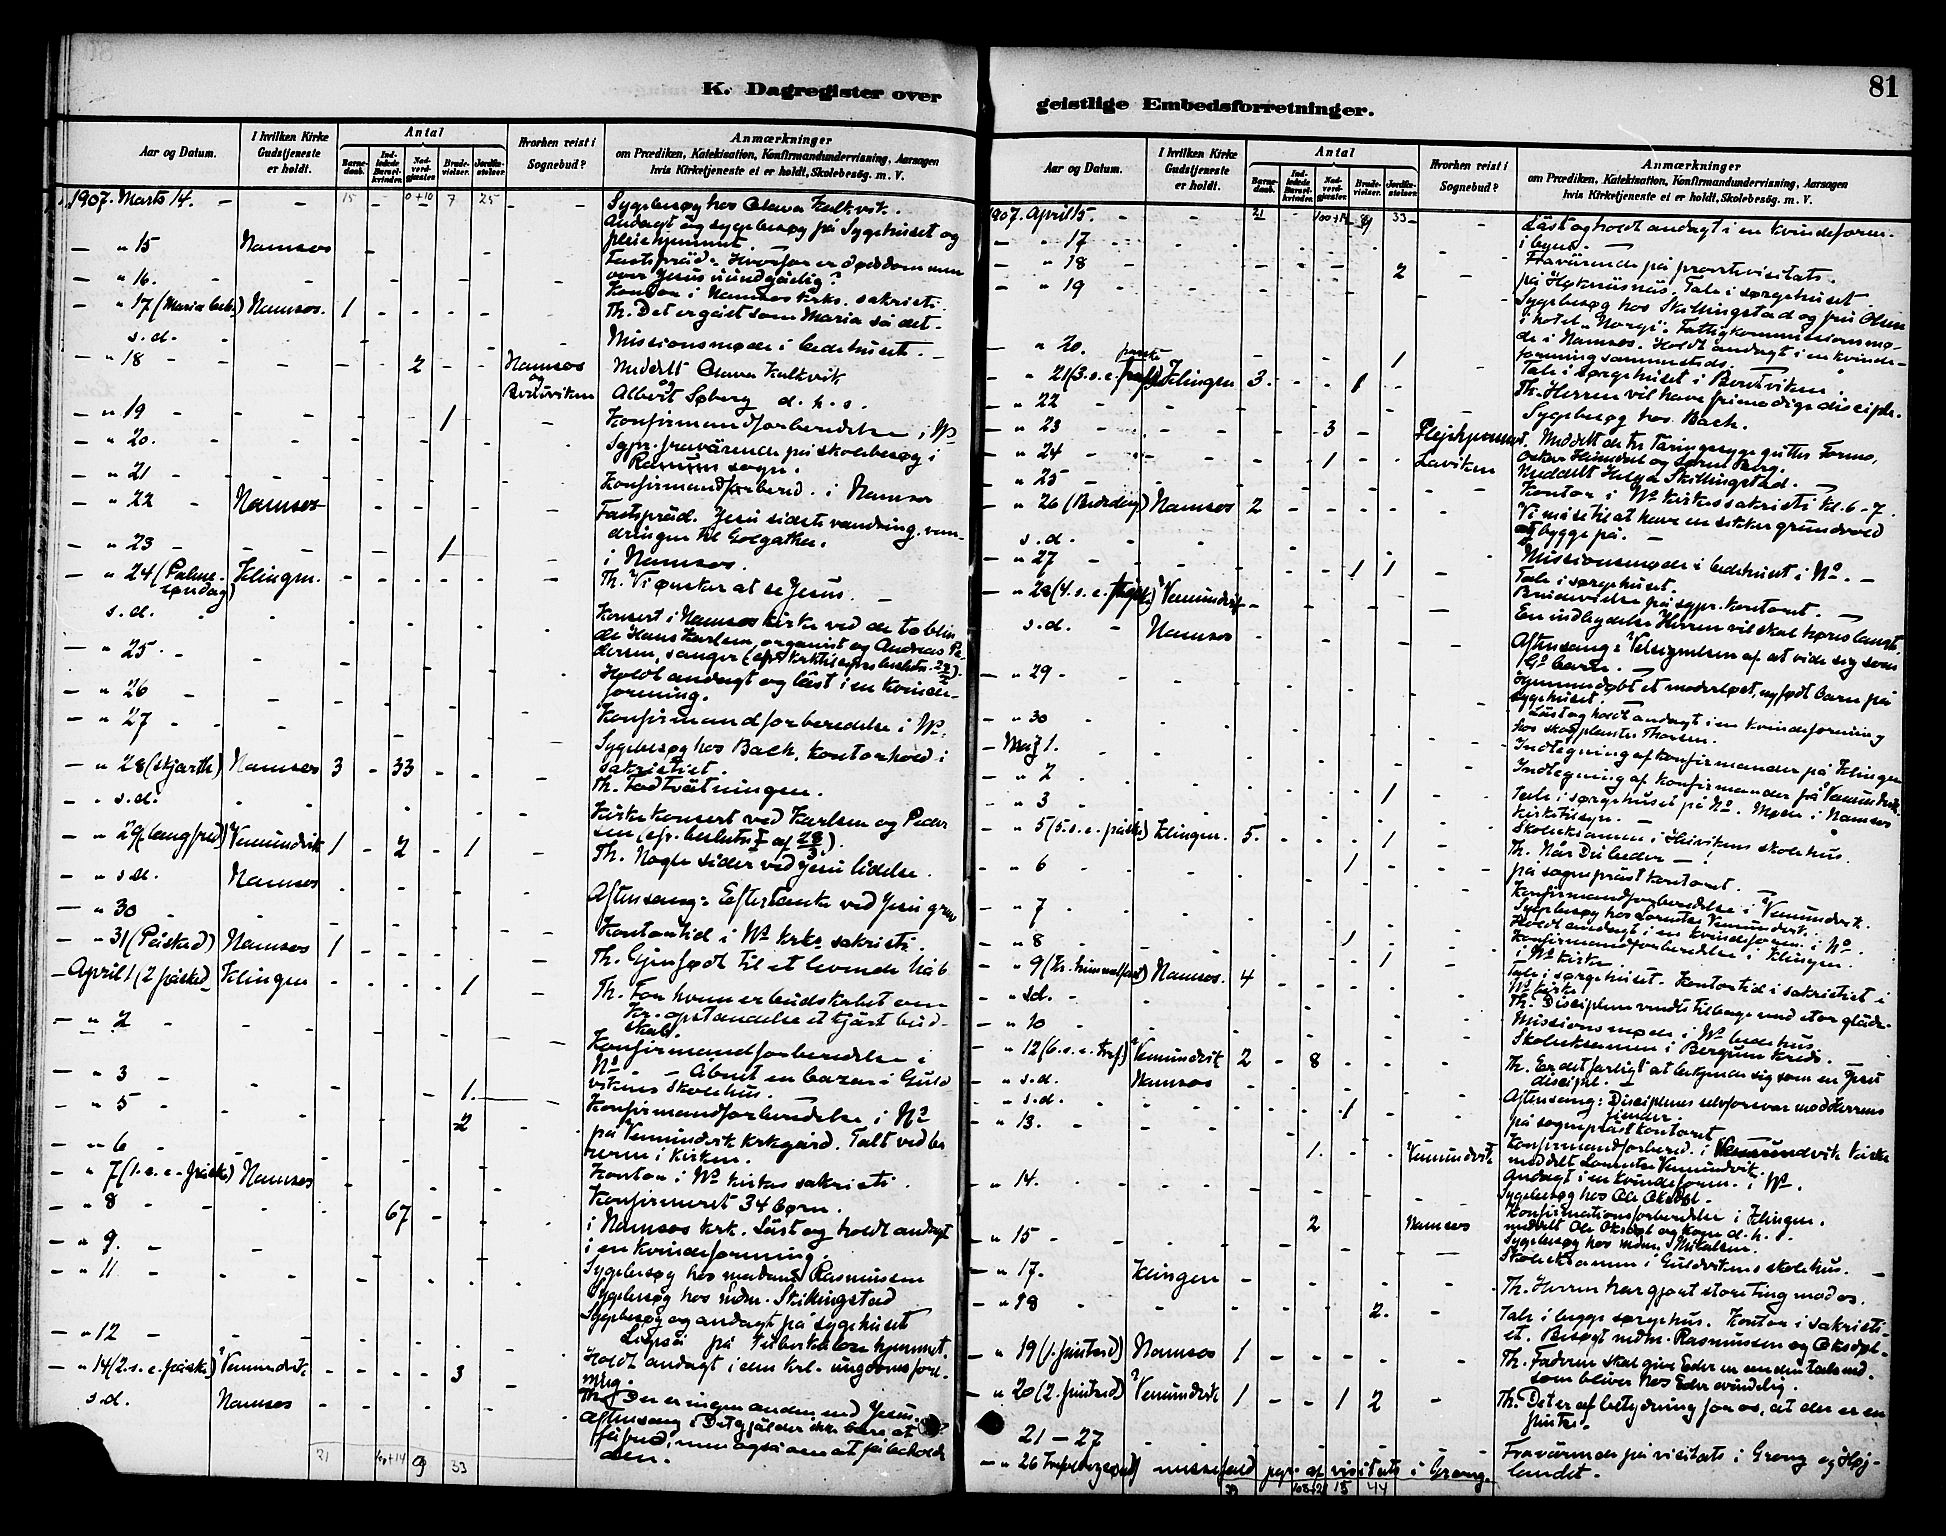 K. Dagregister over
Aar og Datum.
I hvilken Kirke Gudstjeneste er holdt.
Antal
Barnedaab.
Indledede Barselkvinder.
Nadverdgjæster.
Brudevielser.
Jordfæstelser.
Hvorhen reist i Sognebud?
Anmærkninger
om Prædiken, Katekisation, Konfirmandundervisning, Aarsagen
hvis Kirketjeneste ei er holdt, Skolebesøg. m. V.
1907. Marts 14. - - 15 - 0+10 7 25 - Sygebesøg hos Olava Kalkvik.
Andagt og sygebesøg på Sygehuset og
pleiehjemmet.
- " 15 Namsos Fastepräd. Hvorfor er dødsdommen
over Jesus uundgåelig?
- " 16. Kontor i Namsos kirkes sakristi.
- " 17 (Maria beb.) Namsos. 1 Th. Det er gået som Maria så det.
s.d. Missionsmøde i bedehuset.
- " 18 2 Namsos og Meddelt Olava Kalkvik
Albert Søberg d. h. s.
- " 19 1 Konfirmandforberedelse i Ns
- " 20. Sgpr. fraværende på skolebesøg i
sogn.
- " 21 Konfirmandforbered. i Namsos
- " 22 Namsos Fastepräd. Jesu sidste vandring, van-
dringen til Golgatha.
- " 23 1 i Namsos.
- " 24 (Palmesøndag) Klingen. Th. Vi ønsker at se Jesus.
s.d. Konsert i Namsos kirke ved de to blin-
de Hans Karlsen, organist og Andreas Pe-
dersen, sanger
- " 25 Holdt andagt og läst i en kvinde-
forening.
- " 26 Konfirmandforberedelse i Ns.
- " 27 Sygebesøg hos Bach, kontorhold i
sakristiet.
- " 28 (skjærth) Namsos 3 - 33 Th. Fodtvätningen.
- " s.d. Kirkekonsert ved Karlsen og Peder
sen
- " 29 (langfred) Vemundvik 1 - 2 - 1 Th. Nogle sider ved Jesu lidelse.
- " s.d. Namsos Aftensang: Eftertanke ved Jesu grav
- " 30 Kontortid i Ns krks sakristi.
- " 31 (Påsked) Namsos 1 Th. Gjenfødt til et levende håb.
- April 1 (2 påsked) Klingen 1 Th. For hvem er budskabet om
Kr. opstandelse et kjärt bud-
skab.
- " 2 Konfirmandforberedelse i
Ns. - Åbnet en bazar i Guld
vikens skolehus.
- " 3 1. Konfirmandforberedelse i Ns
- " 5 2 på Vemundvik krkgård. Talt ved be
i kirken.
- " 6 Kontor i Ns kirkes sakristi.
- " 7 (1. s. e. påske) Namsos Konfirmeret 34 børn.
- " 8 67 i Namsos krk. Läst og holdt andagt
i en kvindeforening.
- " 9. Sygebesøg hos madam Rasmussen
- " 11 Sygebesøg hos mdm. Skillingstad
Sygebesøg og andagt på sygehuset
- " 12 på Tuberkulosehjemmet.
Holdt andagt i den krl. ungdomsfore-
ning.
- " 14 (2. s. e. påske) Vemundvik 3 Th. Der er ingen anden end Jesus.
s.d. Namsos Aftensang: Det gjälder ikke bare at
få fred, men også om at få beholde
den.
21 9 33
geistlige Embedsforretninger.
81
Aar og Datum.
I hvilken Kirke Gudstjeneste er holdt.
Antal
Barnedaab.
Indledede Barselkvinder.
Nadverdgjæster.
Brudevielser.
Jordfæstelser.
Hvorhen reist i Sognebud?
Anmærkninger
om Prædiken, Katekisation, Konfirmandundervisning, Aarsagen
hvis Kirketjeneste ei er holdt, Skolebesøg. m. V.
1907. April 15. 21 9 33 Läst og holdt andagt i en kvindeforen.
i byen.
- " 17 Fraværende på provstevisitats.
- " 18 2 på Høknesnäs. Tale i sørgehuset
- " 19 Sygebesøg hos Skillingstad og fru Olsen
i hotel "Norge". Fattigkommissionsmø-
de i Namsos. Holdt andagt i en kvinde-
forening sammesteds.
- " 20. 1 Tale i sørgehuset i
- " 21 (3. s. e. påske) Klingen 3. - - 1 Th. Herren vil have frimodige disciple.
- " 22 Sygebesøg hos Bach.
- " 23 3 Pleiehjemmet. Meddelt de tre täringssyge gutter Formo,
Oskar og Søren Berg.
- " 24 1 Laviken Meddelt Helga Skillingstad.
- " 25 Kontor i Ns kirkes sakristi kl. 6-7.
- " 26 (Bededag) Namsos 2 Vi må se til at have en sikker grundvold
at bygge på.
s.d. Missionsmøde i bedehuset i Ns.
- " 27 1 1 Tale i sørgehuset.
Brudevielse på sgpr. kontoret.
- " 28 (4. s. e. påske) Vemundvik En indbydelse Herren vil skal høres
s.d. Namsos Aftensang: Velsignelsen af at vide sig som
Gs barn.
- " 29 Hjemmedøbt et moderløst, nyfødt barn på
sygehuset.
- " 30 Läst og holdt andagt i en kvindeforening
hos skogplanter Thorsen.
- Maj 1. Indtegning af konfirmander på Klingen
- " 2 Indtegning af konfirmander på Vemundvik
- " 3 1 Tale i sørgehuset på Ns. Møde i Namsos
kirketilsyn.
- " 5 (5. s. e. påske) Klingen. 5. 1 Skoleeksamen i skolehus.
Th. Når Du beder -!
- " 6 1 på sogneprästkontoret.
Konfirmandforberedelse i Vemundvik.
- " 7 Sygebesøg hos Lorentse Vemundvik.
Holdt andagt i en kvindeforen. i Ns.
- " 8 1 Konfirmandforberedelse i Klingen.
i Ns kirke
- " 9 (Kr. himmelfart) Namsos. 4 1 Tale i sørgehuset. Kontortid i sakristiet i
Ns kirke.
- " s.d. Th. Disciplene vendte tilbage med stor gläde.
- " 10 Missionsmøde i Ns bedehus.
Skoleeksamen i Bergum kreds.
- " 12 (6. s. e. påske) Vemundvik 2 - 8 Th. Er det farligt at bekjende sig som en Jesu
discipel.
- " s.d. Namsos Aftensang: Disciplenes selvforsvar mod Herrens
fiender.
- " s.d. 1 på sogneprästkontoret
- " 13. 1. Vemundvik Konfirmandforbered. i Vemundvik kirke
meddelt Lorentse Vemundvik.
- " 14. Andagt i en kvindeforen. i Ns.
Sygebesøg hos Ole Oksdøl.
2 Namsos Konfirmationsforberedelse i Klingen.
meddelt Ole Oksdøl og kone d. h. s.
- " 15 Sygebesøg hos mdm. Mikalsen.
Skoleeksamen i Guldvikens skolehus.
- " 17. Klingen Th. Herren har gjort store ting mod os.
- " 18 2. Tale i begge sørgehus. Kontor i sakristi-
et. Besøgt mdm. Rasmussen og Oksdøl.
- " 19 (1. pinsed) Namsos 1 Th. Faderen skal give Eder en anden talsmd.
som bliver hos Eder evindelig.
- " 20 (2. pinsed) Vemundvik 1 - - 1 2 Th. Det er af betydning for os, at der er en
pinse.
21-27 Fraværende på visitats i Grong og Høj-
landet.
- " 26 messefald pgr. af visitats i Grong.
39 108+21 15 44